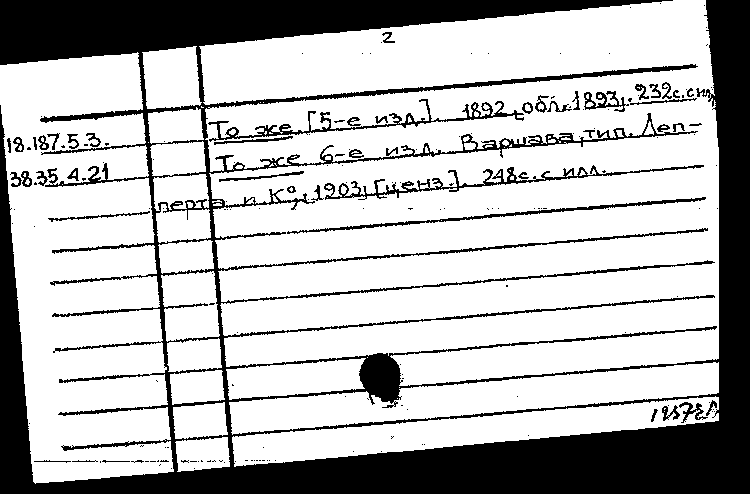 2
18.187.5.3. То же. [5-е изд.]. 1892, [обл. 1893]. 232с. с илл.
38.35.4.21 То же 6-е изд. Варшава, тип. Леп-
перта и К°, [1903] [ценз.]. 248с. с илл.